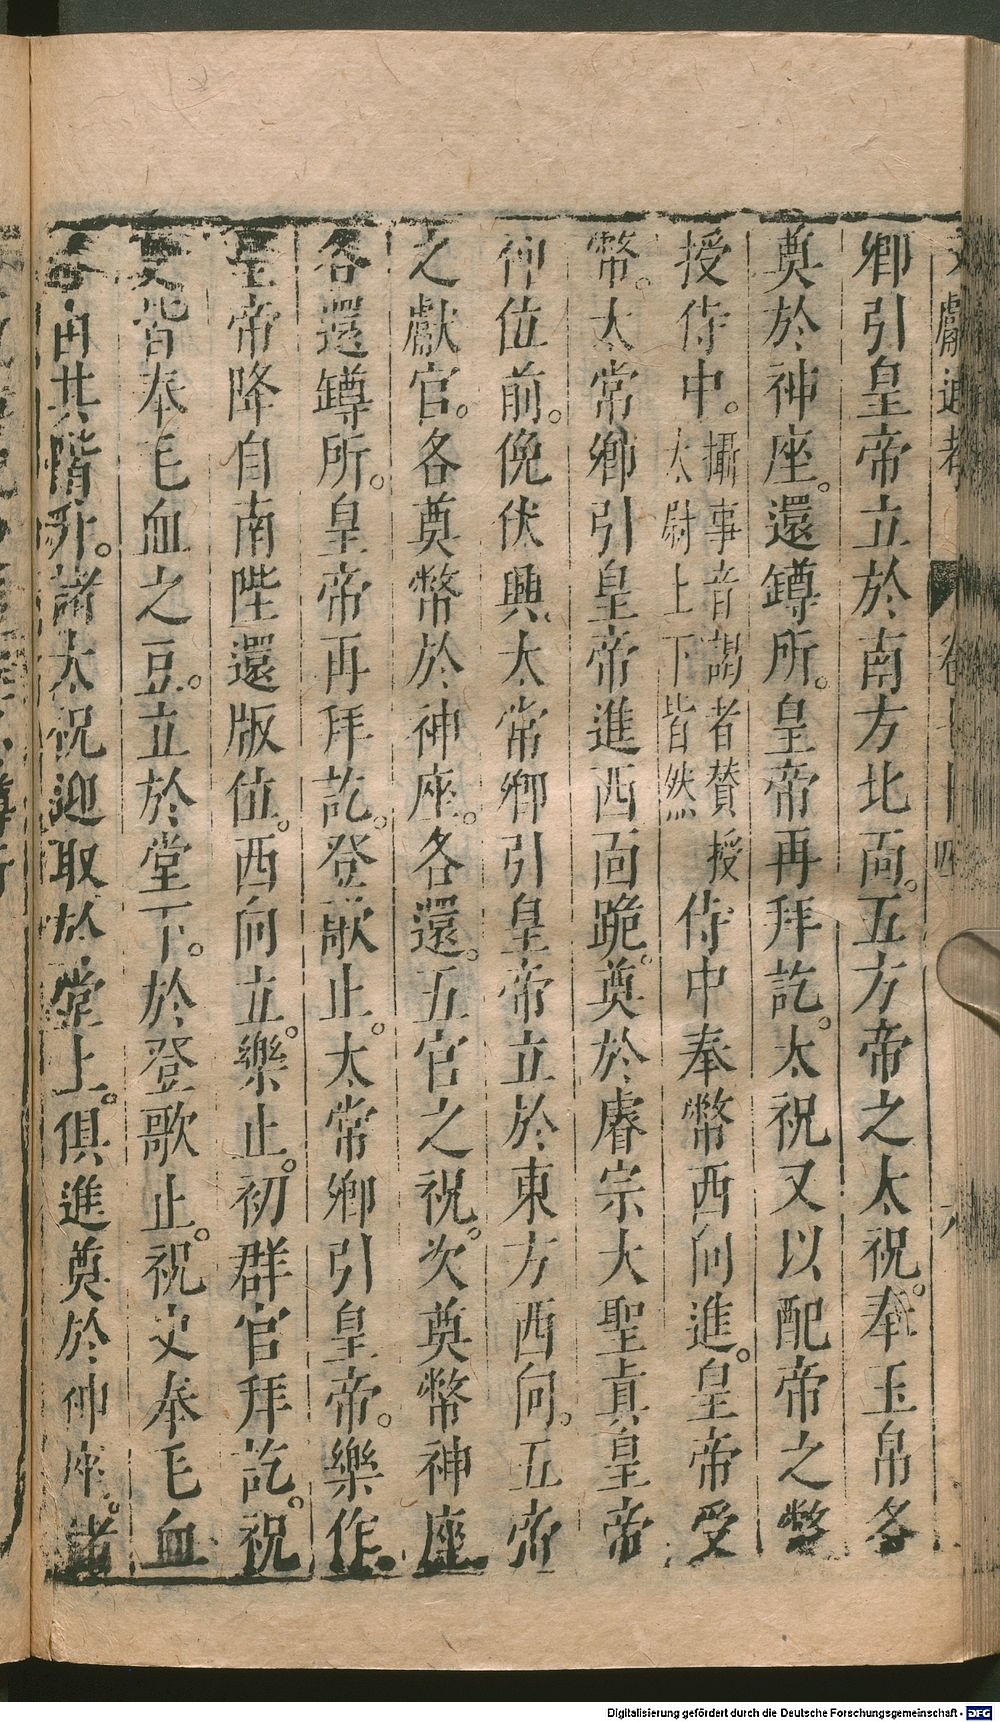 文獻通考 卷七十四 六
卿引皇帝立於南方北面。五方帝之太祝。奉玉帛各
奠於神座。還罇所。皇帝再拜訖。太祝又以配帝之幣
授侍中。攝事音謁者贊授太尉上下皆然侍中奉幣西向進。皇帝受
幣。太常卿引皇帝進西面跪。奠於睿宗大聖眞皇帝
神位前。俛伏興。太常卿引皇帝立於東方西向。五帝
之獻官。各奠幣於神座。各還。五官之祝。次奠幣神座。
各還罇所。皇帝再拜訖。登歌止。太常卿引皇帝。樂作。
皇帝降自南陛還版位。西向立。樂止。初群官拜訖。祝
史皆奉毛血之豆。立於堂下。於登歌止。祝史奉毛血
各由其階升。諸太祝迎取於堂上。俱進奠於神座。諸
Digitalisierung gefördert durch die Deutsche Forschungsgemeinschaft - DFG